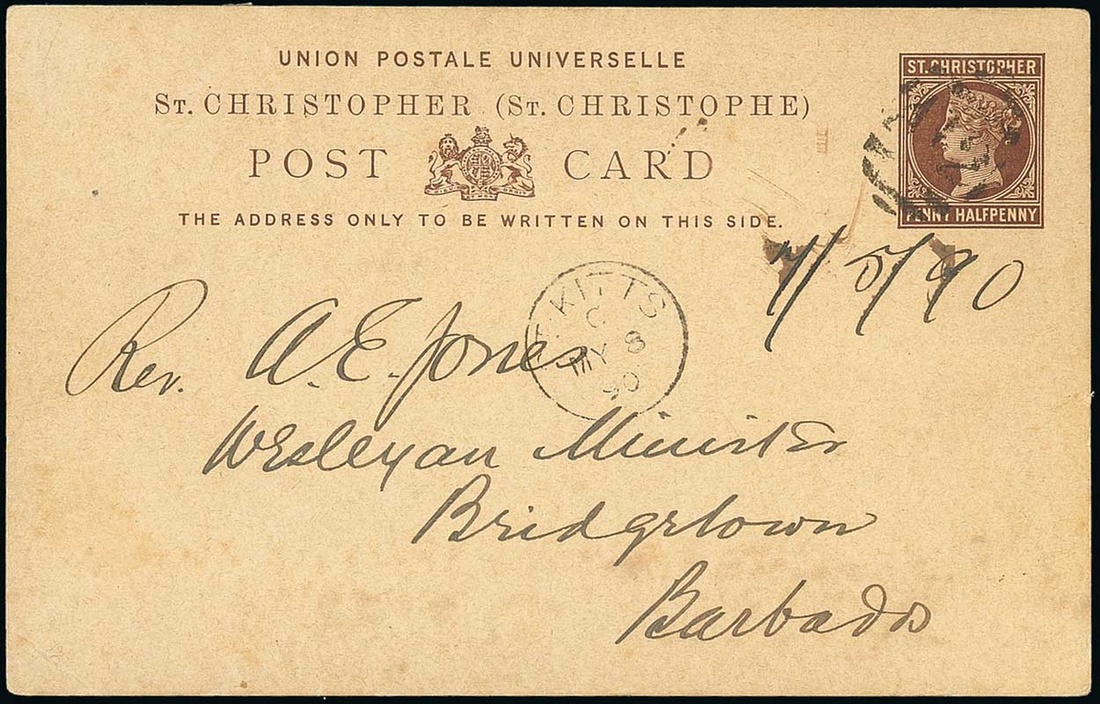 UNION POSTALE UNIVERSELLE
ST. CHRISTOPHER (ST. CHRISTOPHE)
POST CARD
THE ADDRESS ONLY TO BE WRITTEN ON THIS SIDE.
ST. CHRISTOPHER
PENNY HALFPENNY
7/5/90
KITTS
C
MY 8
90
Rev. A. E. Jones
Wesleyan Minister
Bridgetown
Barbados